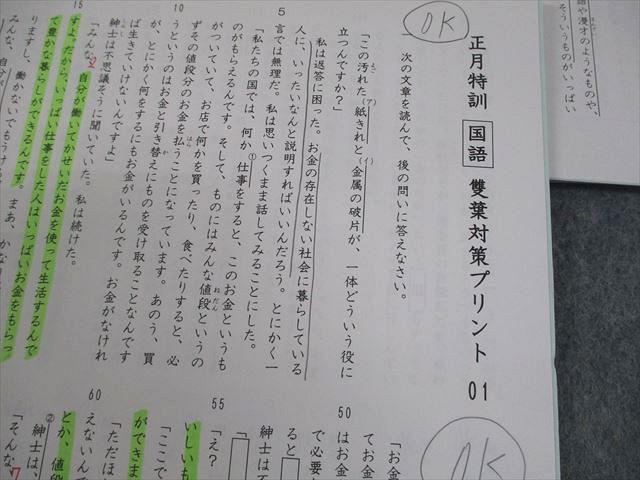 OK
正月特訓 国語 雙葉対策プリント 01
一 次の文章を読んで、後の問いに答えなさい。
「この汚れた(ア)紙きれと(イ)金属の破片が、一体どういう役に
立つんですか?」
私は返答に困った。お金の存在しない社会に暮らしている
5
人に、いったいなんと説明すればいいんだろう。とにかく一
言では無理だ。私は思いつくまま話してみることにした。
「私たちの国では、何か①仕事をすると、このお金というも
のがもらえるんです。そして、ものにはみんな値段というの
がついていて、お店で何かを買ったり、食べたりすると、必
ずその値段分のお金を払うことになっています。あのう、買
10
うというのはお金と引き替えにものを受け取ることなんです
が、とにかく何をするにもお金がいるんです。お金がなけれ
ば生きていけないんですよ」
紳士は不思議そうに聞いていた。私は続けた。
「みんな、自分が働いてかせいだお金を使って生活するんで
15
すよ。だから、いっぱい仕事をした人はいっぱいお金をもらっ
て豊かな暮らしができるんです。まあ、かな
りますし、働かないでもうける
みんな、自分が
語や漫才のようなものや、
そういうものがいっぱい
OK
「お金
てお金
はお金
50
で必要
ると
紳士は不
「え?
55
いしいも
「ここで
ができま
「ただほ
えないんで
60
とか、値段
②
紳士は、
「そんな